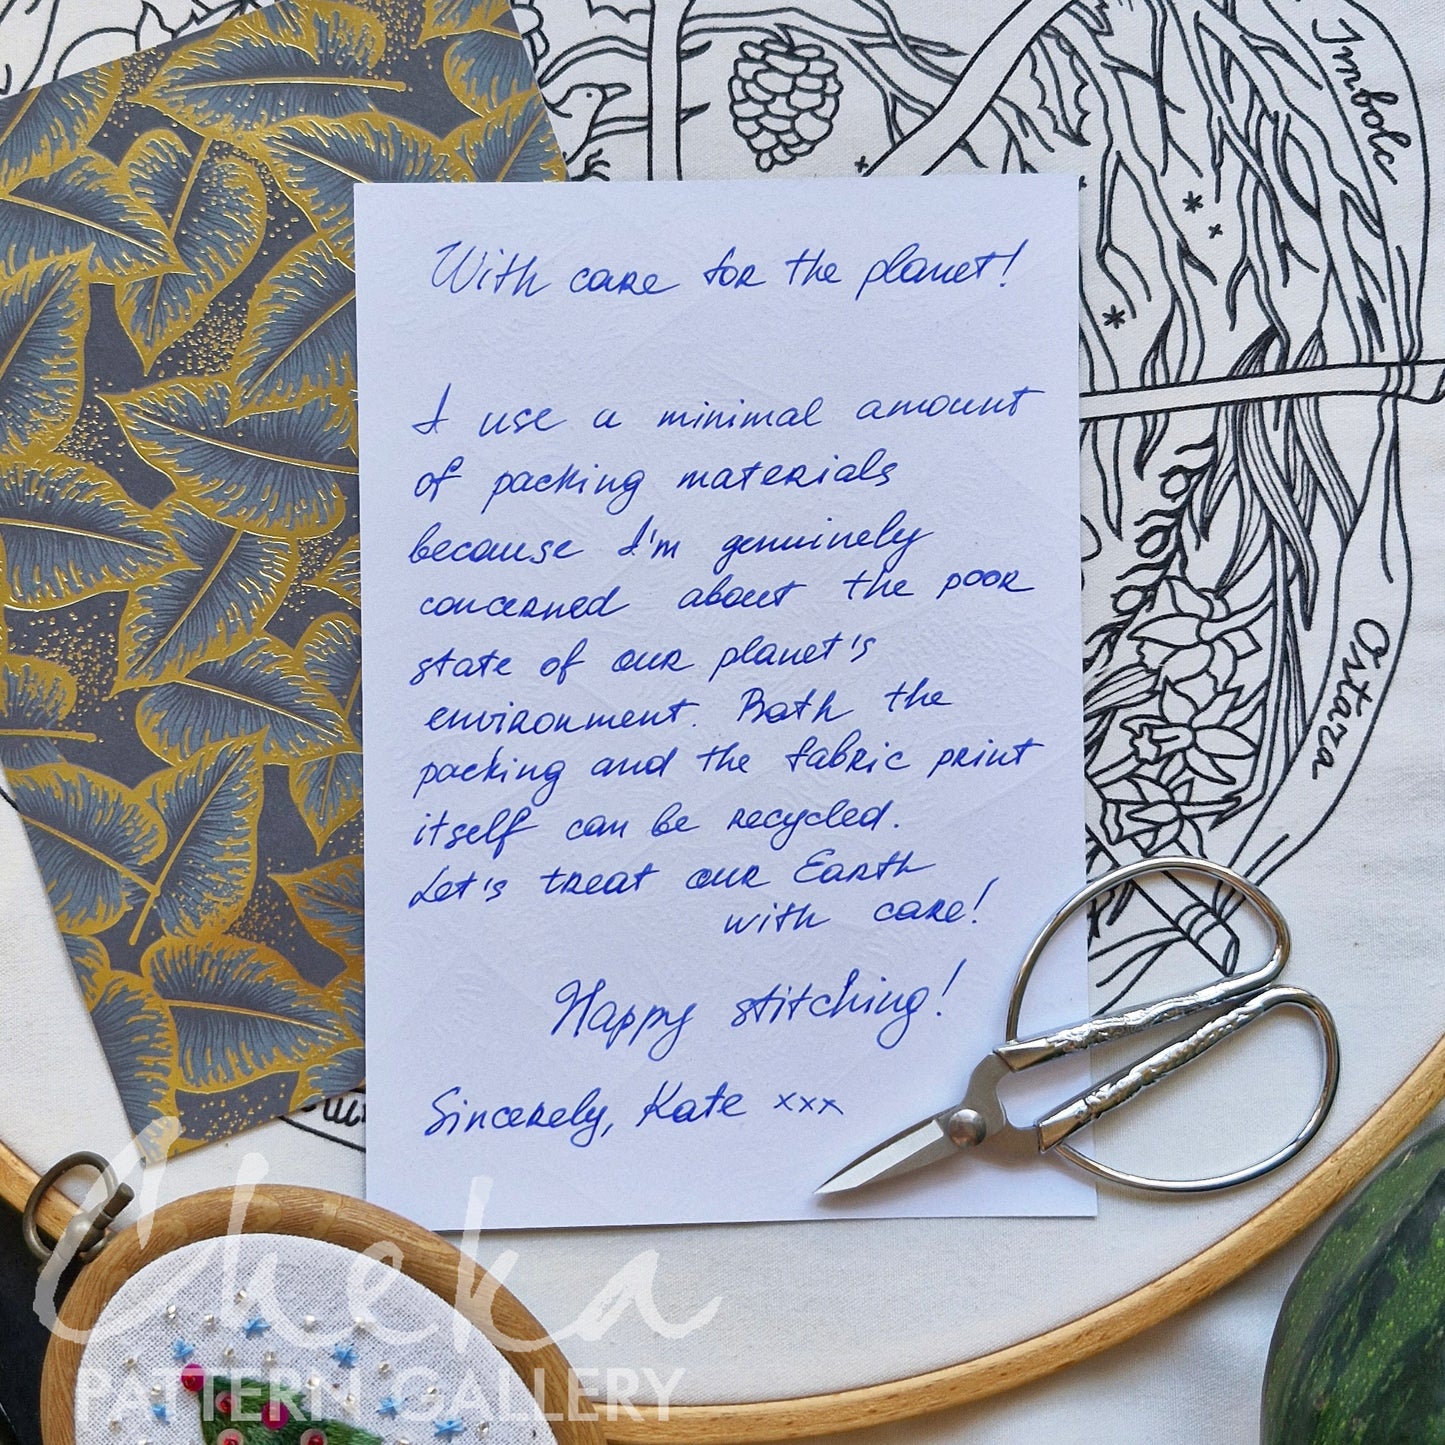 Imbolc
Ostara
With care for the planet!
I use a minimal amount
of packing materials
because I'm genuinely
concerned about the poor
state of our planet's
environment. Both the
packing and the fabric print
itself can be recycled.
Let's treat our Earth
with care!
Happy stitching!
Sincerely, Kate xxx
Cheka
PATTERN GALLERY